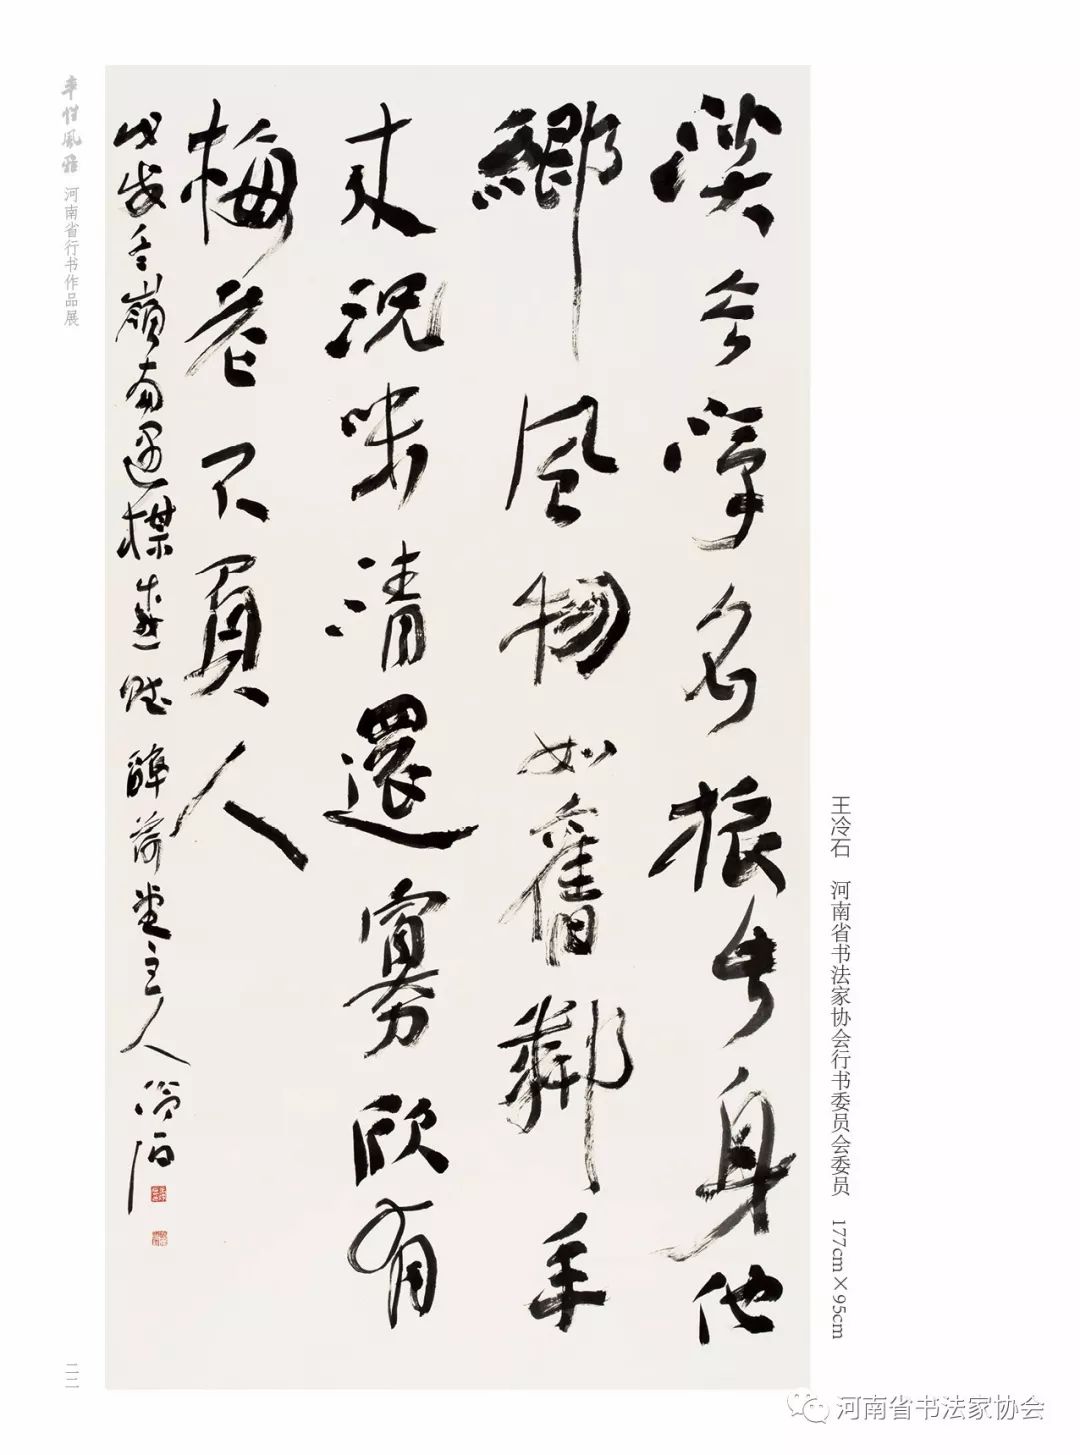 王冷石 河南省书法家协会行书委员会委员 177cm×95cm
淡名身他
鄉風物如舊鄰年
來況味清還寡欣有
梅花不負人
戊戌冬嶺南遇楳感賦 醉荷堂主人冷石
率性風雅 河南省行书作品展
二二
河南省书法家协会